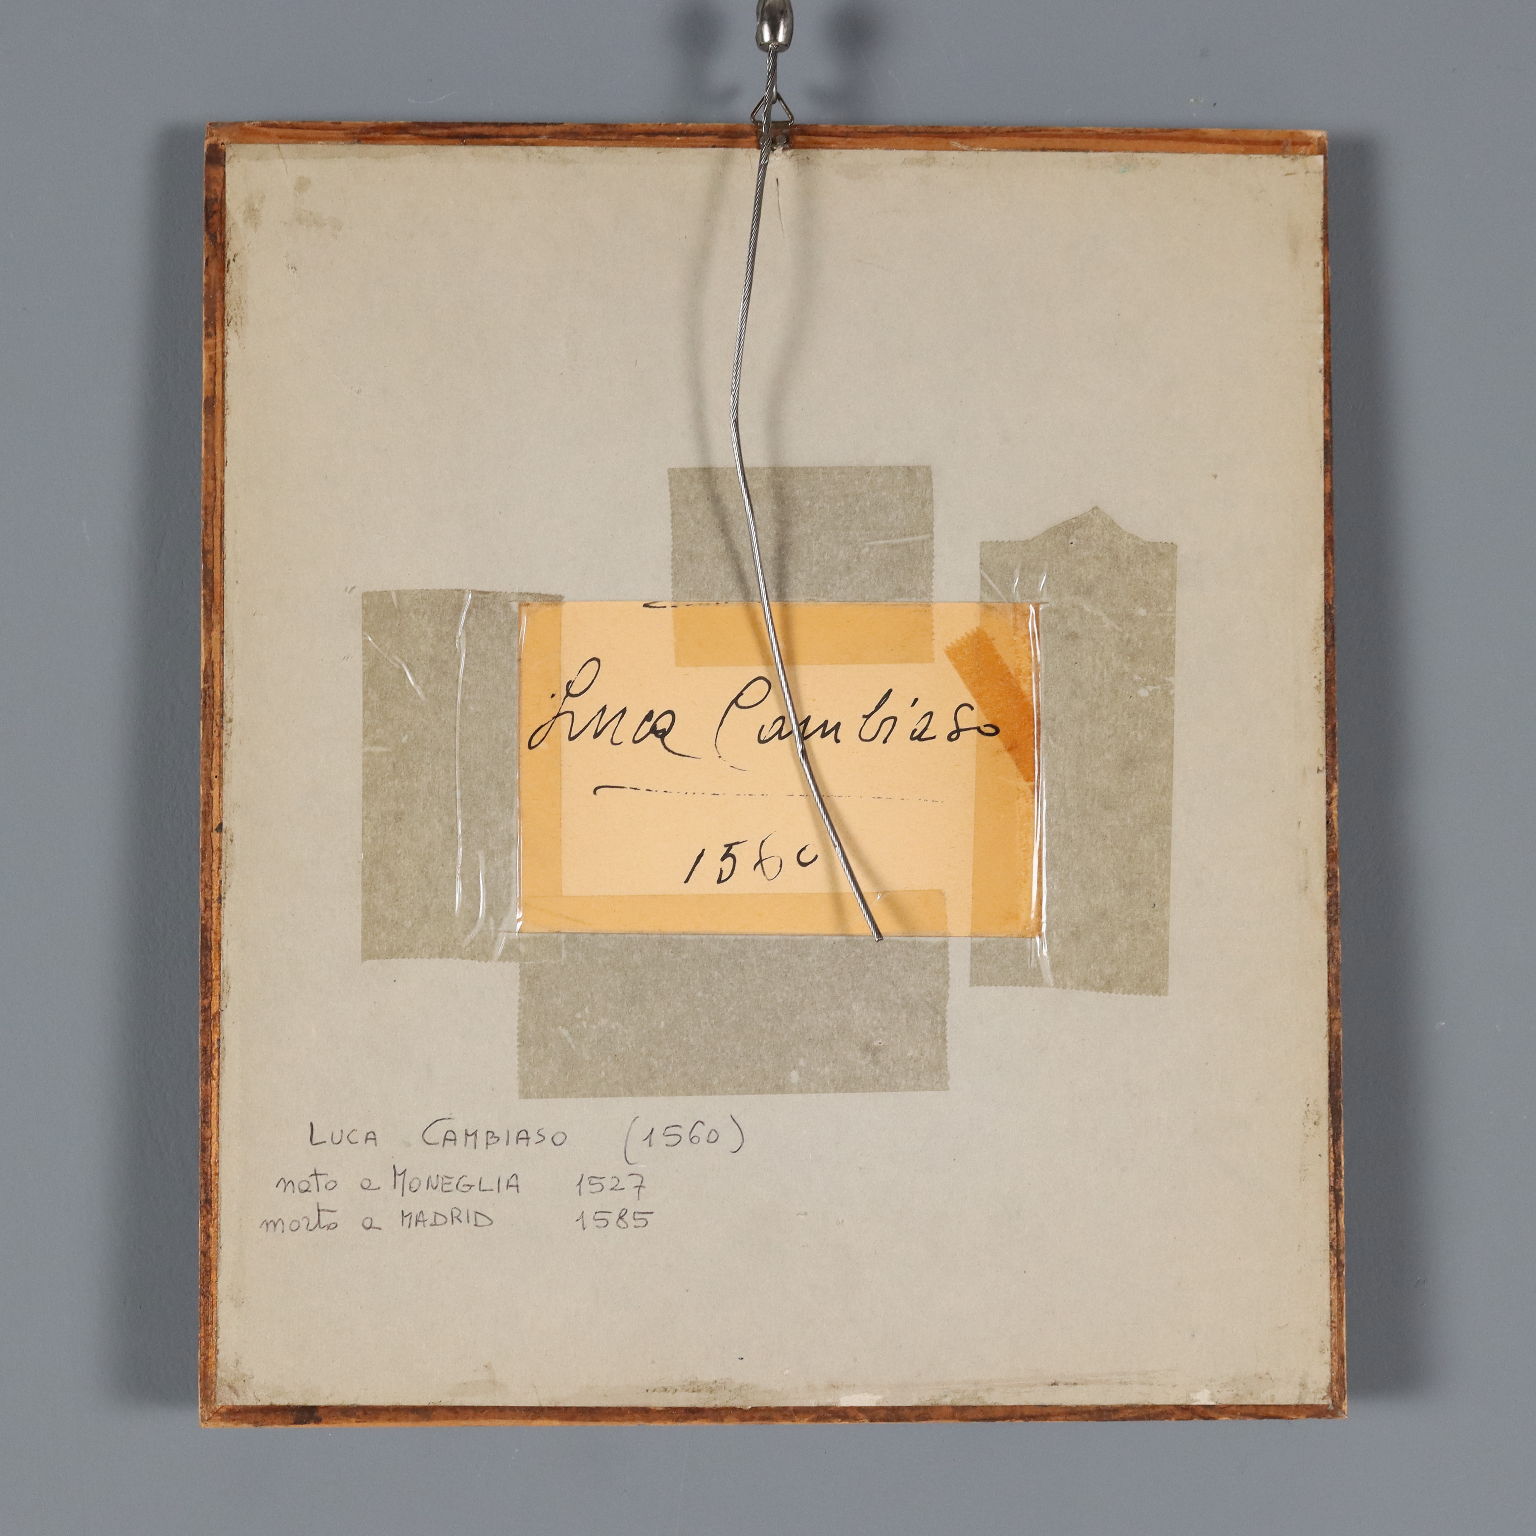 Luca Cambiaso
1560
LUCA CAMBIASO (1560)
nato a MONEGLIA 1527
morto a MADRID 1585